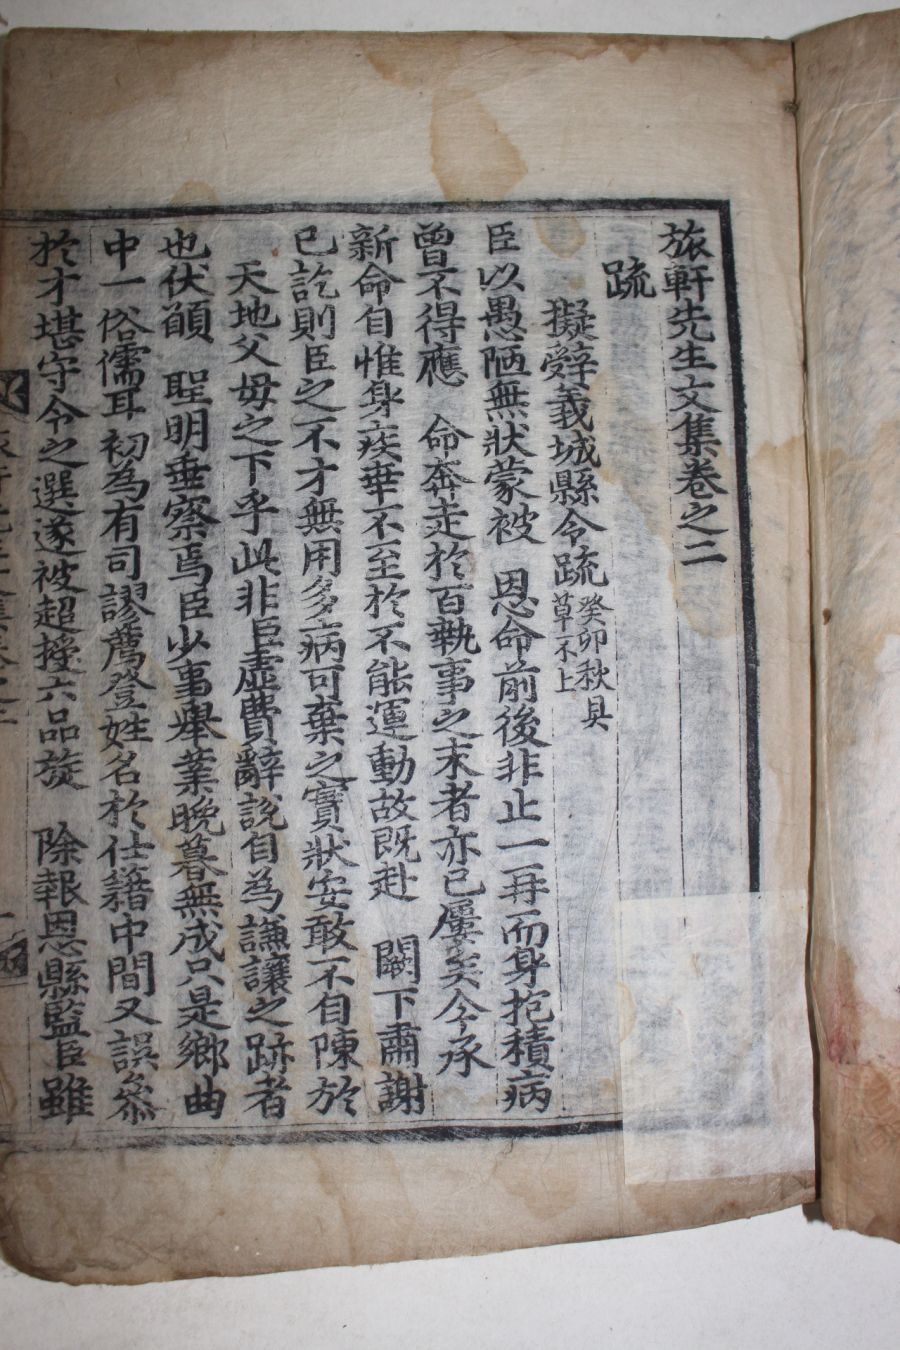 旅軒先生文集卷之二
疏
擬辭義城縣令疏 癸卯秋具草不上
臣以愚陋無狀蒙被 恩命前後非止一再而身抱積病
曾不得應 命奔走於百執事之末者亦已屢矣今承
新命自惟身疾幸不至於不能運動故旣赴 闕下肅謝
已訖則臣之不才無用多病可棄之實狀安敢不自陳於
天地父母之下乎此非臣虛費辭說自為謙讓之跡者
也伏願 聖明垂察焉臣少事擧業晩暮無成只是鄉曲
中一俗儒耳初為有司謬薦登姓名於仕籍中間又誤叅
於才堪守令之選遂被超授六品旋 除報恩縣監臣雖